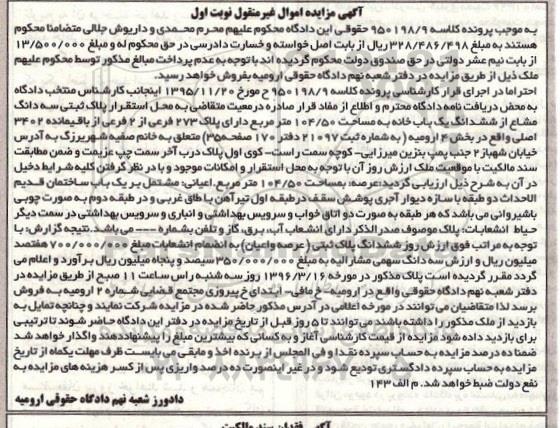 آگهی مزایده اموال غیرمنقول نوبت اول
به موجب پرونده کلاسه ۹۵۰۱۹۸/۹ حقوقی این دادگاه محکوم علیهم محرم محمدی و داریوش جلالی متضامنا محکوم
هستند به مبلغ ۳۲۸/۴۸۶/۴۹۸ ریال از بابت اصل خواسته و خسارت دادرسی در حق محکوم له و مبلغ ۱۳/۵۰۰/۰۰۰
از بابت نیم عشر دولتی در حق صندوق دولت محکوم گردیده اند با توجه به عدم پرداخت مبالغ مذکور توسط محکوم علیهم
ملک ذیل از طریق مزایده در دفتر شعبه نهم دادگاه حقوقی ارومیه بفروش خواهد رسید.
احتراما در اجرای قرار کارشناسی پرونده کلاسه ۹۵۰۱۹۸/۹ ح مورخ ۱۳۹۵/۱۱/۲۰ اینجانب کارشناس منتخب دادگاه
به محض دریافت نامه دادگاه محترم و اطلاع از مفاد قرار صادره درمعیت متقاضی به محل استقرار پلاک ثبتی سه دانگ
مشاع از ششدانگ یک باب خانه به مساحت ۱۰۴/۵۰ متر مربع دارای پلاک ۲۷۳ فرعی از ۲ فرعی از باقیمانده ۳۴۰۲
اصلی واقع در بخش ۴ ارومیه ( به شماره ثبت ۲۱۰۹۷ دفتر ۱۷۰ صفحه ۳۵) متعلق به خانم صفیه شهریزرگ به آدرس
خیابان شهباز ۲ جنب پمپ بنزین میرزایی- کوچه سمت راست- کوی اول پلاک درب آخر سمت چپ عزیمت و ضمن مطابقت
سند مالکیت با موقعیت ملک ارزش روز آن با توجه به محل استقرار و امکانات موجود و با در نظر گرفتن کلیه شرایط دخیل
در آن به شرح ذیل ارزیابی گردید:عرصه: بمساحت ۱۰۴/۵۰ متر مربع. اعیانی: مشتمل بر یک باب ساختمان قدیم
الاحداث دو طبقه با سازه دیوار آجری پوشش سقف درطبقه اول تیرآهن با طاق غربی و در طبقه دوم به صورت چوبی
باشیروانی می باشد که هر طبقه به صورت دو اتاق خواب و سرویس بهداشتی و انباری و سرویس بهداشتی در سمت دیگر
حیاط انشعابات: پلاک موصوف صدرالذکر دارای انشعاب آب، برق، گاز و تلفن بشماره --- می باشد. نتیجه گزارش: با
توجه به مراتب فوق ارزش روز ششدانگ پلاک ثبتی ( عرصه واعیان) به انضمام انشعابات مبلغ ۷۰۰/۰۰۰/۰۰۰ هفتصد
میلیون ریال و ارزش سه دانگ سهمی مشارالیه به مبلغ ۳۵۰/۰۰۰/۰۰۰ سیصد و پنجاه میلیون ریال برآورد و اعلام می
گردد مقرر گردیده است پلاک مذکور در مورخه ۱۳۹۶/۳/۱۶ روز سه شنبه راس ساعت ۱۱ صبح از طریق مزایده در
دفتر شعبه نهم دادگاه حقوقی واقع در ارومیه- خ مافی- ابتدای خ پیروزی مجتمع قضایی شماره ۲ ارومیه به فروش
برسد لذا متقاضیان می توانند در مورخه اعلامی در آدرس مذکور حاضر شده در مزایده شرکت نمایند و چنانچه تمایل به
بازدید از ملک مذکور را داشته باشند می توانند تا ۵ روز قبل از تاریخ مزایده در دفتر این دادگاه حاضر شوند تا ترتیبی
برای بازدید داده شود مزایده از قیمت کارشناسی آغاز و به کسانی که بیشترین مبلغ را پیشنهاددهند واگذار خواهد شد
ضمنا ده درصد مزایده به حساب سپرده نقدا و فی المجلس از برنده اخذ و مابقی می بایست ظرف مهلت یکماه از تاریخ
مزایده به حساب سپرده دادگستری تودیع شود و در غیر اینصورت ده درصد واریزی پس از کسر هزینه های مزایده به
نفع دولت ضبط خواهد شد. م الف ۱۴۳
دادورز شعبه نهم دادگاه حقوقی ارومیه
آگهی فقدان سند مالکیت